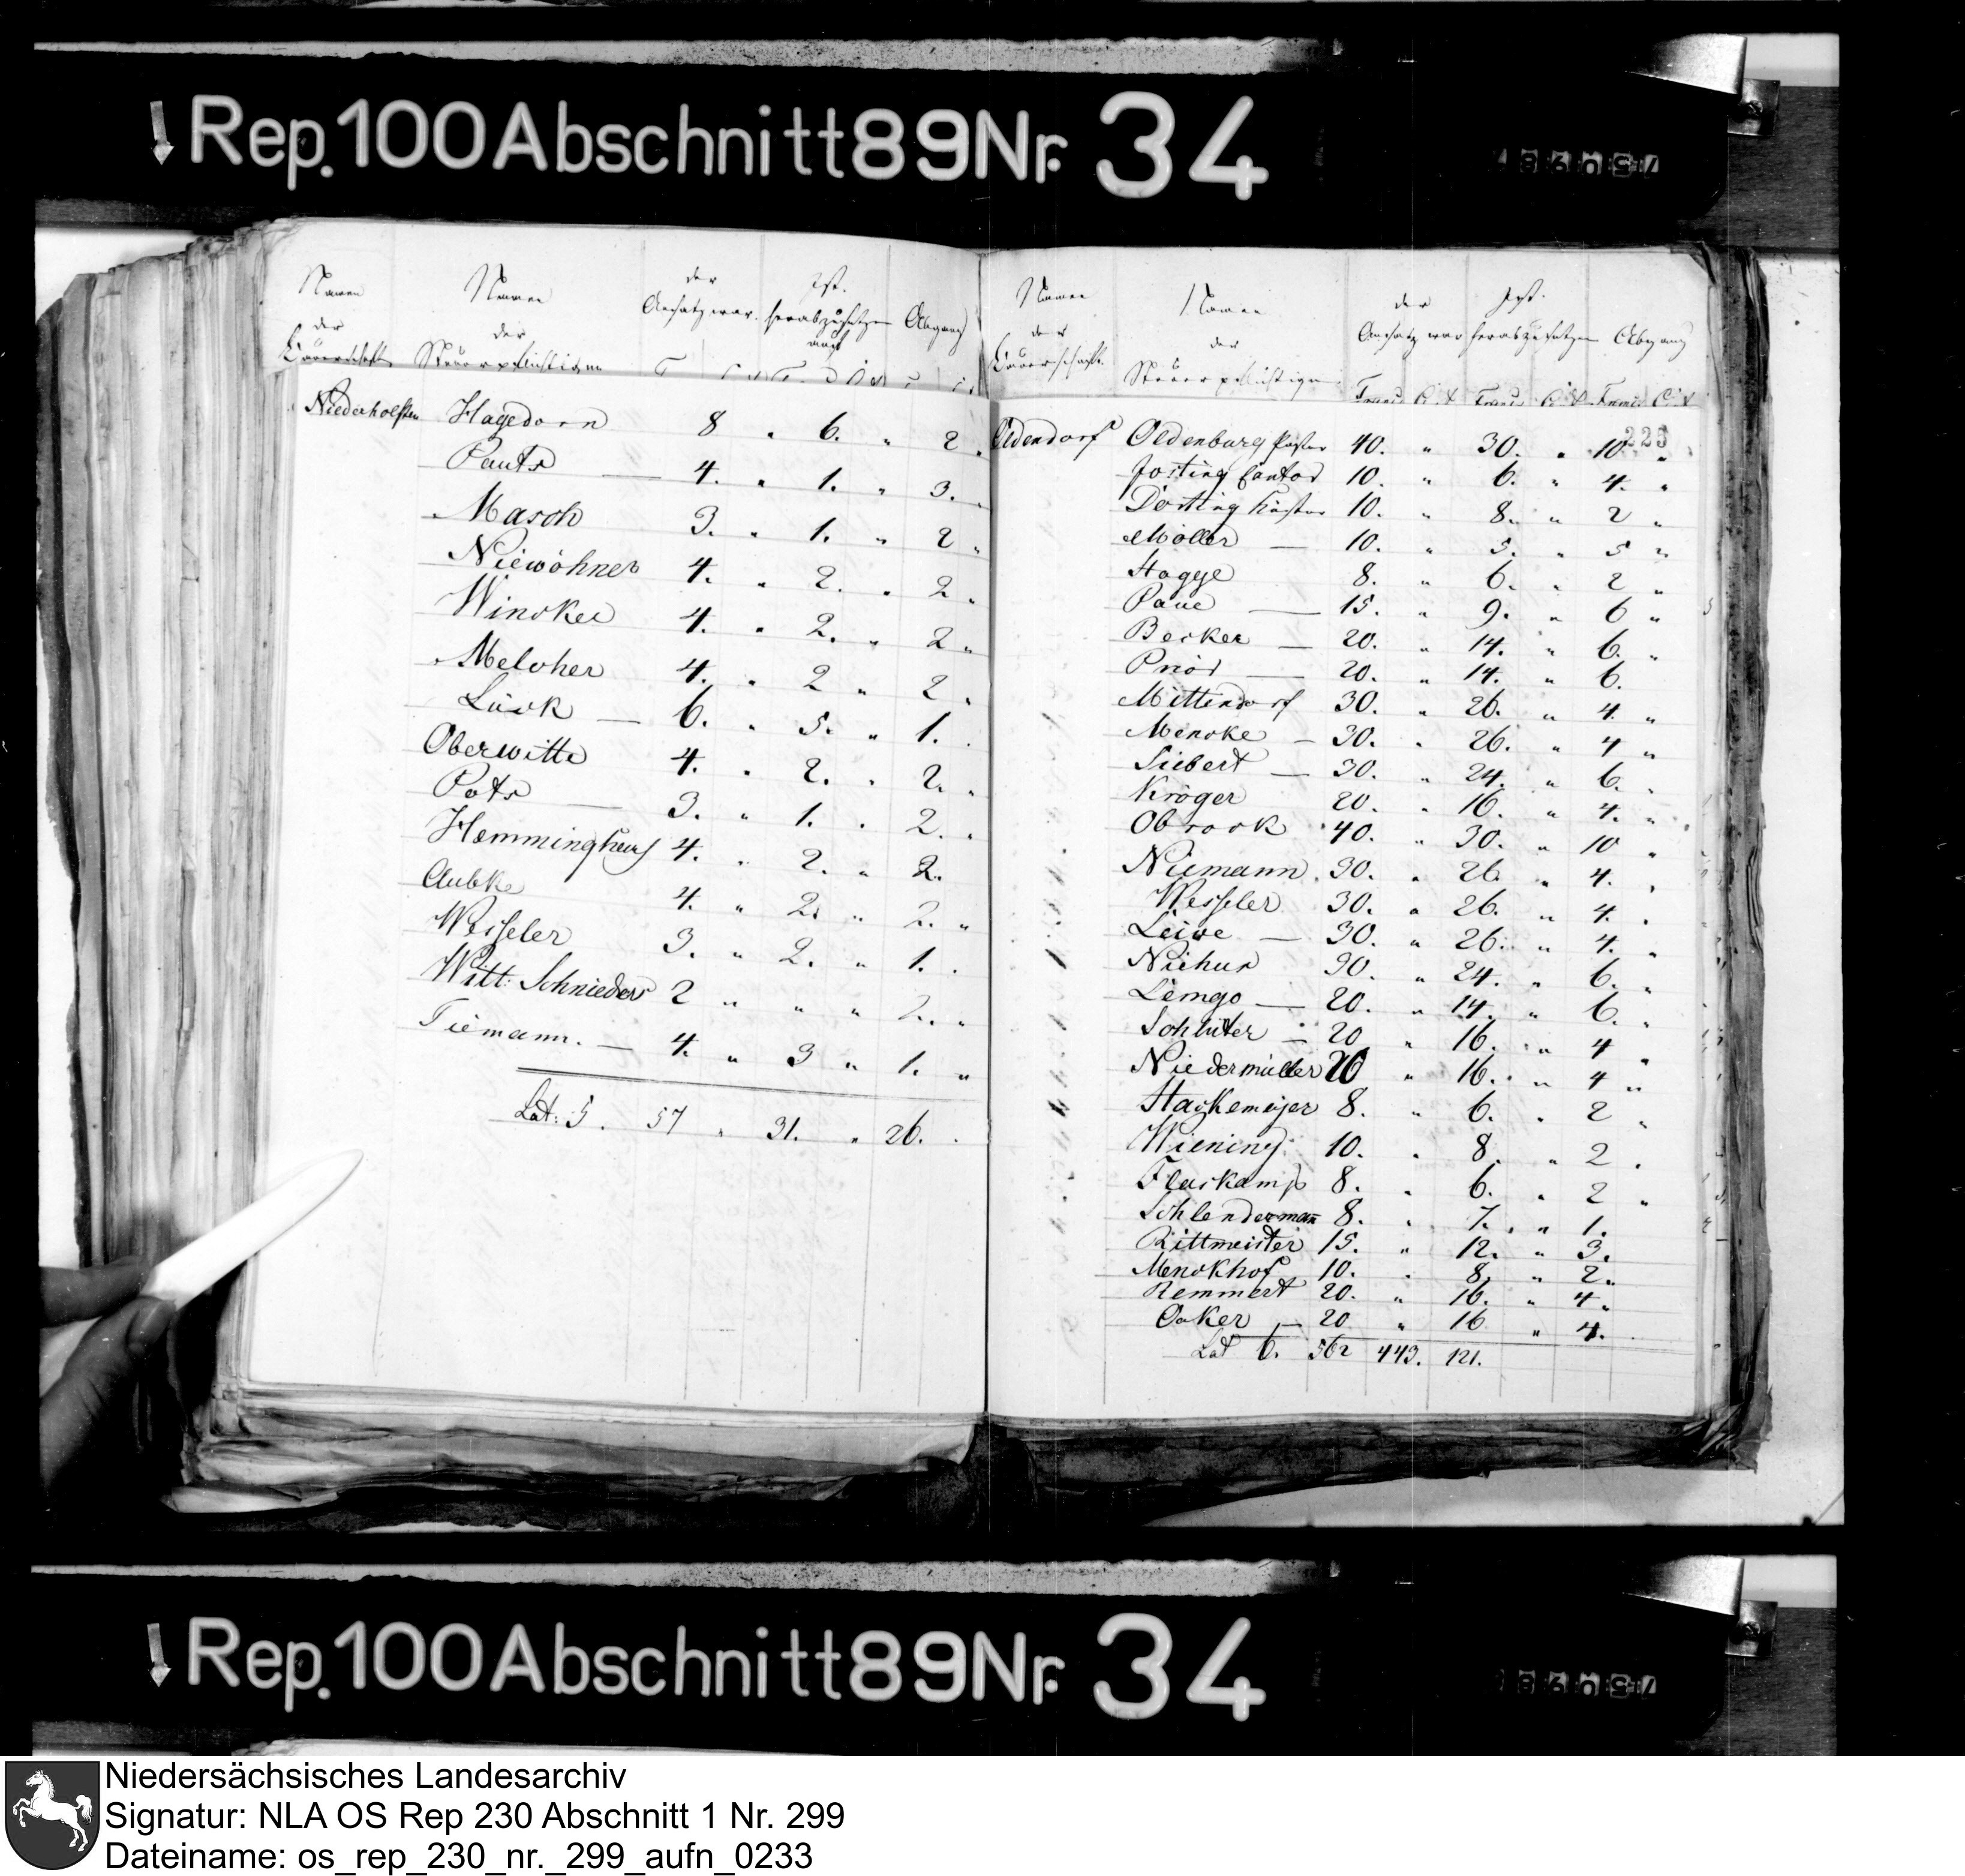 Rep. 100 Abschnitt 89 Nr. 34
Namen der Bauerschaft
Namen der Steuerpflichtigen
der Ansatz war.
Ist. herabzusetzen auf
Abgang
Niederholsten Hagedorn 8 " 6. " 2 "
Pauts — 4. " 1. " 3. "
Masch 3. " 1. " 2 "
Niewöhner 4. " 2. " 2 "
Wincker 4. " 2. " 2 "
Melcher 4. " 2 " 2 "
Lück — 6. " 5. " 1. "
Oberwitte 4. " 2. " 2. "
Pots — 3. " 1. " 2. "
Hemminghaus 4. " 2. " 2.
Aubke 4. " 2. " 2. "
Wesseler 3. " 2. " 1. "
Witt: Schnieders 2 " " " 2. "
Tiemann. — 4. " 3 " 1. "
Lat: 5. 57 " 31. " 26. "
Namen der Bauerschaft.
Namen der Steuerpflichtigen
der Ansatz war
Ist. herabzusetzen
Abgang
Franc Ct Franc Ct Franc Ct
225
Oldendorf Oldenburg Pastor 40. " 30. " 10 "
Josting Cantor 10. " 6. " 4. "
Dorting Küster 10. " 8. " 2 "
Möller — 10. " 5. " 5 "
Hagge 8. " 6. " 2 "
Paue — 15. " 9. " 6 "
Becker — 20. " 14. " 6. "
Priör — 20. " 14. " 6.
Mittendorf 30. " 26. " 4. "
Mencke — 30. " 26. " 4 "
Siebert — 30. " 24. " 6. "
Kröger 20. " 16. " 4. "
Obrock 40. " 30. " 10 "
Niemann. 30. " 26 " 4. "
Wesseler 30. " 26. " 4. "
Leiwe — 30. " 26. " 4. "
Niehus 30. " 24. " 6. "
Lemgo — 20. " 14. " 6. "
Schlüter — 20 " 16. " 4 "
Niedermüller 20 " 16. " 4 "
Hackemeijer 8. " 6. " 2 "
Wiening. 10. " 8. " 2 "
Flaskamp 8. " 6. " 2 "
Schlendermann 8. " 7. " 1.
Rittmeister 15. " 12. " 3.
Menckhof 10. " 8. " 2 "
Remmert 20. " 16. " 4 "
Oaker — 20 " 16 " 4.
Lat 6. 562 443. 121.
Rep. 100 Abschnitt 89 Nr. 34
Niedersächsisches Landesarchiv
Signatur: NLA OS Rep 230 Abschnitt 1 Nr. 299
Dateiname: os_rep_230_nr._299_aufn_0233